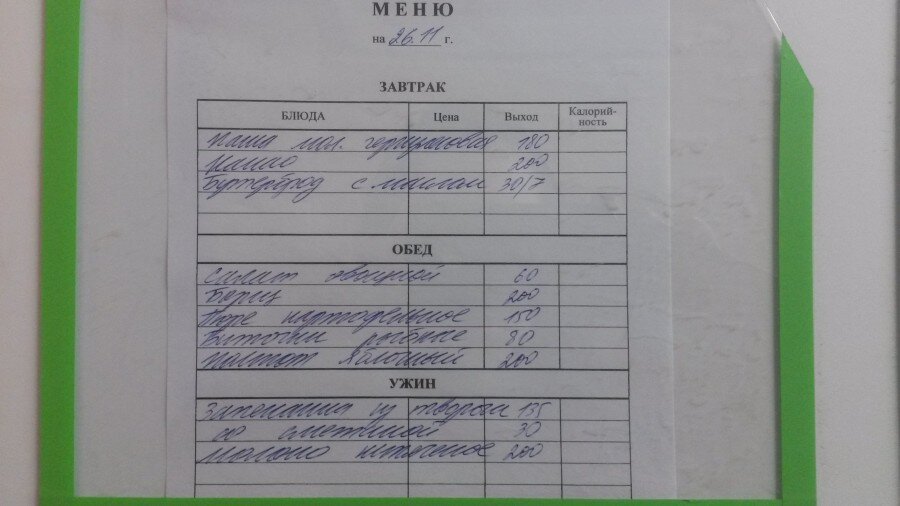 МЕНЮ
на 26.11 г.
ЗАВТРАК
БЛЮДА Цена Выход Калорий-
ность
Каша мол. геркулесовая 180
Какао 200
Бутерброд с маслом 30/7
ОБЕД
Салат овощной 60
Борщ 200
Пюре картофельное 150
Биточки рыбные 80
Компот яблочный 200
УЖИН
Запеканка из творога 135
со сметаной 30
Молоко кипяченое 200